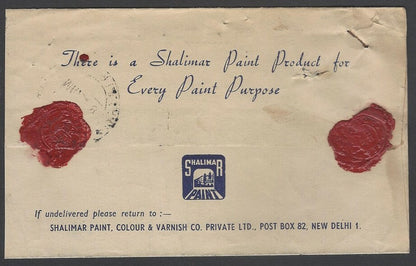 There is a Shalimar Paint Product for
Every Paint Purpose
SHALIMAR
PAINT
If undelivered please return to :—
SHALIMAR PAINT, COLOUR & VARNISH CO. PRIVATE LTD., POST BOX 82, NEW DELHI 1.